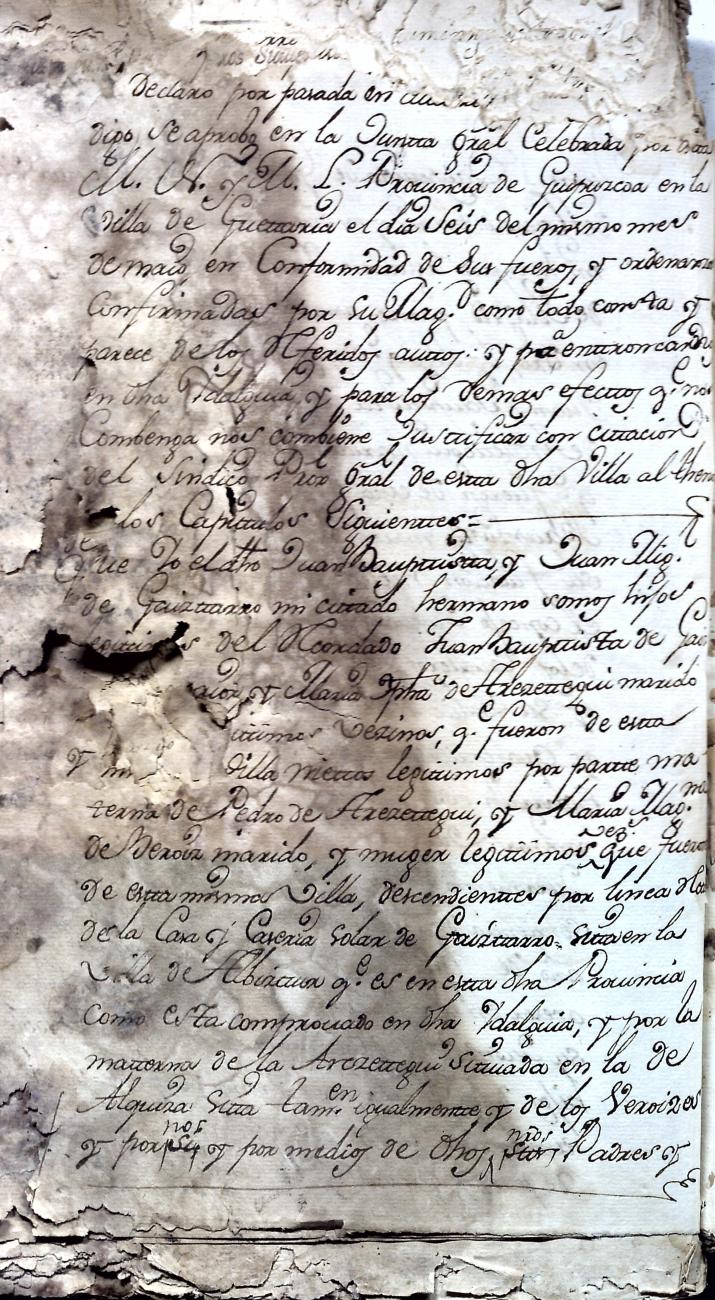 y nos Siguien
Declaro por pasada en
dipo se aprobo en la Juntta gral Celebrada por dhta
M. N. y M. L. Provincia de Guipuzcoa en la
Villa de Guettaria el dia Seis del mismo mes
de maio en Conformidad de Sus fueros, y ordenanzas
Confirmadas por su Mag.d como todo consta y
parece de los Referidos auttos: y pa enttroncar
en dha Ydalguia, y para los demas efecttos q.e nos
Combenga nos combiene Justtificar con cittacion
del Sindico Pror gral de estta dha Villa al thenor
los Capittulos Siguienttes =
Que Yo el dho Juan Bauptistta, y Juan Mig.l
de Gaizttarro mi cittado hermano somos hijos
legitimos del Recordado Juan Bauptista de Gaiz
y Maria Jpha de Arezettegui marido
Vezinos, q.e fueron de estta
y Villa niettos legitimos por partte ma
terna de Pedro de Arezettegui, y Maria Mag.na
de Beroiz marido, y muger legitimos vez.s que fueron
de estta misma Villa, descendienttes por linea
de la Casa y Caseria solar de Gaizttarro, sitta en la
Villa de Albiztur q.e es en estta dha Provincia
Como esta comprovado en dha Ydalguia, y por la
matterna de la Arezettegui Situada en la de
Alquiza sitta tam.en igualmente y de los Veroizes
y por nos si y por medios de dhos nros Padres y